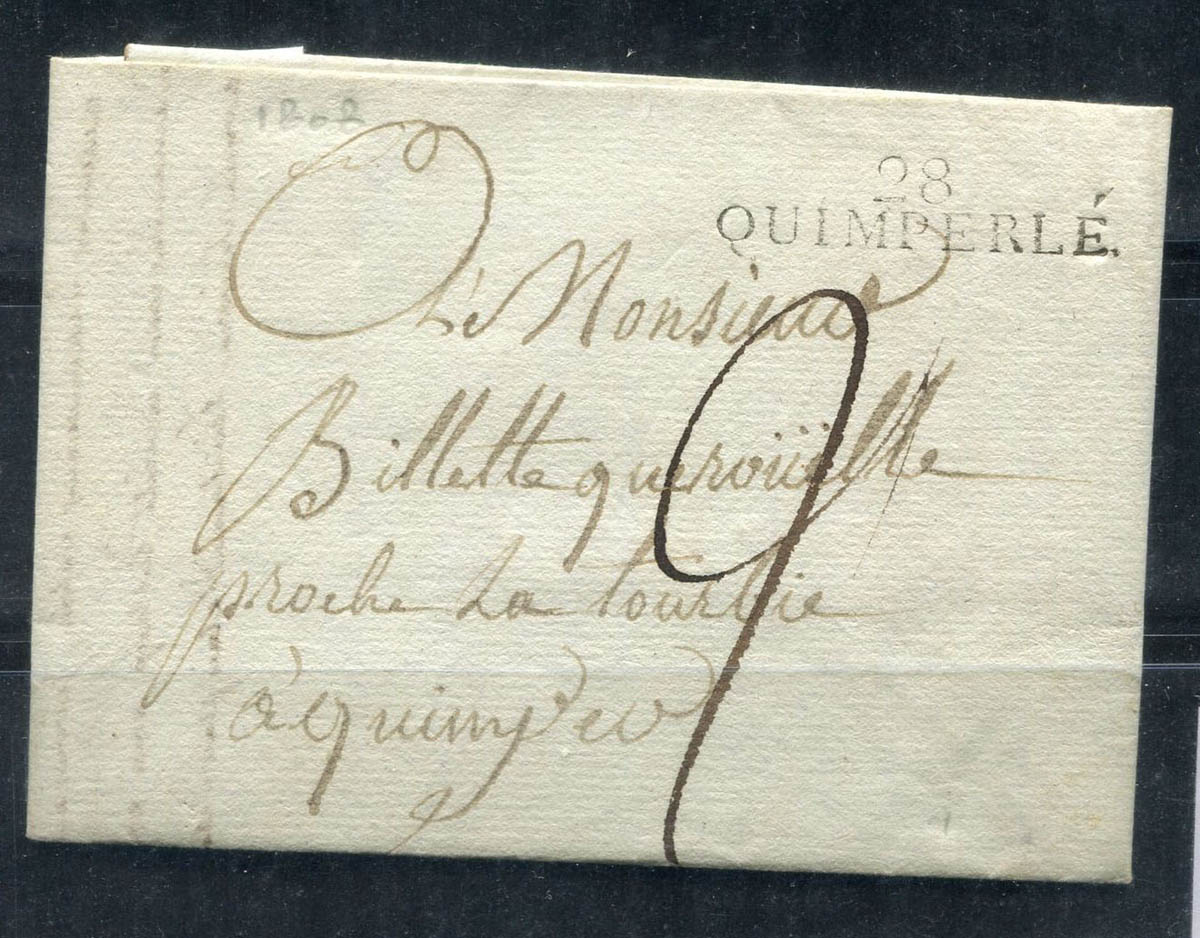 1808
28
QUIMPERLÉ.
Monsieur
Billette querouïlle
proche La tourbie
à quimper